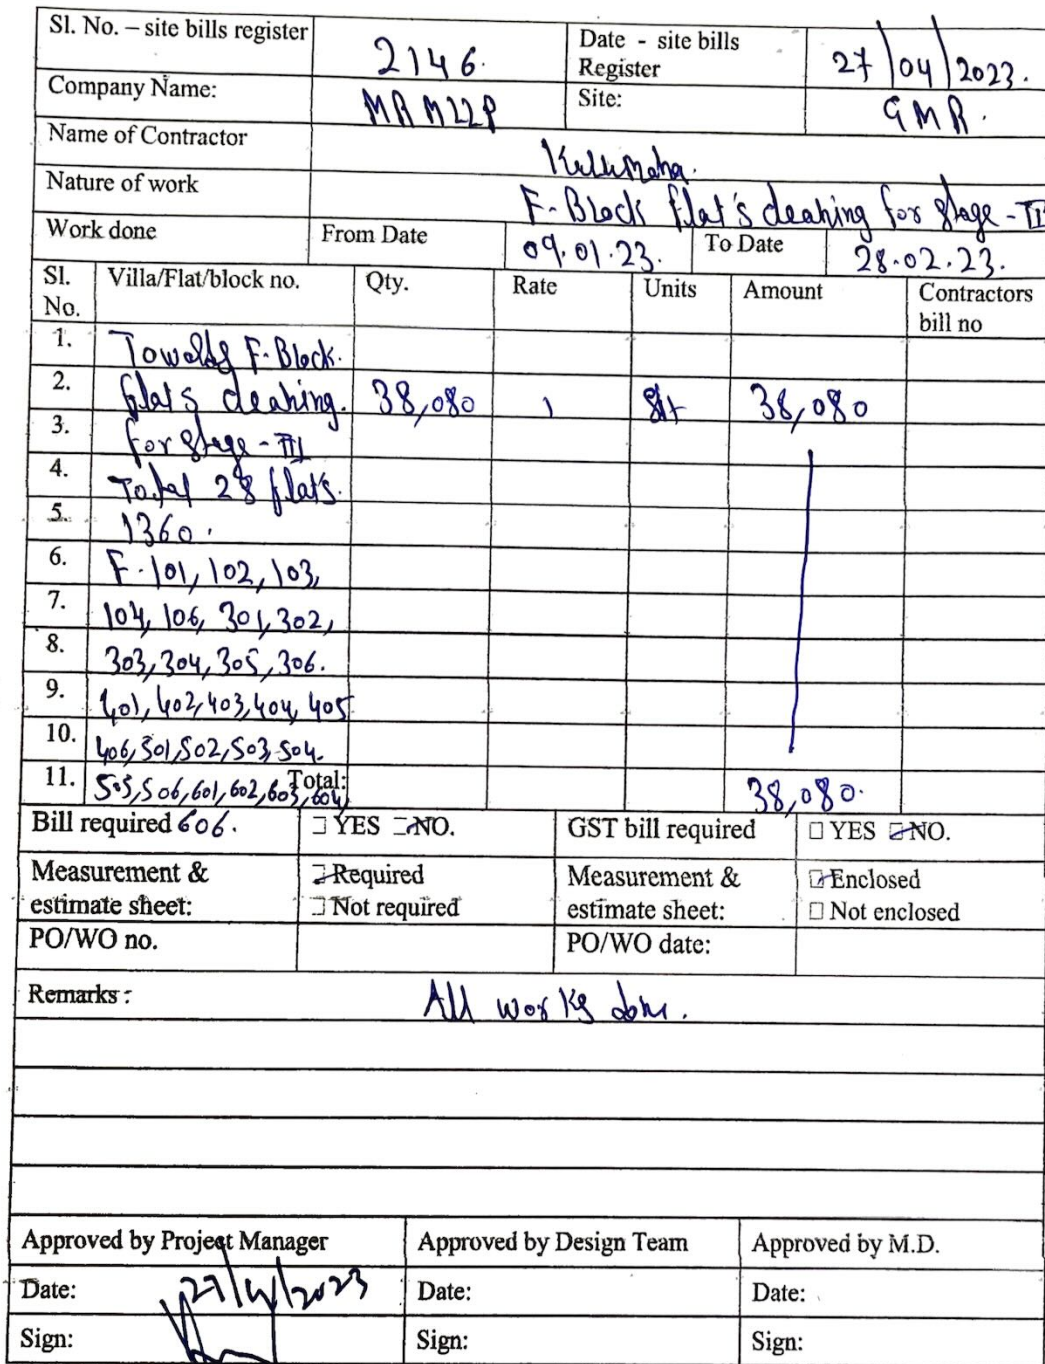 Sl. No. – site bills register 2146. Date - site bills Register 27/04/2023.
Company Name: MRMLLP Site: GMR.
Name of Contractor
Nature of work F-Block flat's cleaning for stage-III
Work done From Date 09.01.23. To Date 28.02.23.
Sl. No. Villa/Flat/block no. Qty. Rate Units Amount Contractors bill no
1. Towards F-Block.
2. flats cleaning. 38,080 1 Sft 38,080
3. for stage-III
4. Total 28 flats.
5. 1360.
6. F-101, 102, 103,
7. 104, 106, 301, 302,
8. 303, 304, 305, 306.
9. 401, 402, 403, 404, 405
10. 406, 501, 502, 503, 504.
11. 505, 506, 601, 602, 603, 604, Total: 38,080.
Bill required 606. YES NO. GST bill required YES NO.
Measurement & estimate sheet: Required Not required Measurement & estimate sheet: Enclosed Not enclosed
PO/WO no. PO/WO date:
Remarks: All works done.
Approved by Project Manager Approved by Design Team Approved by M.D.
Date: 27/4/2023 Date: Date:
Sign: Sign: Sign: